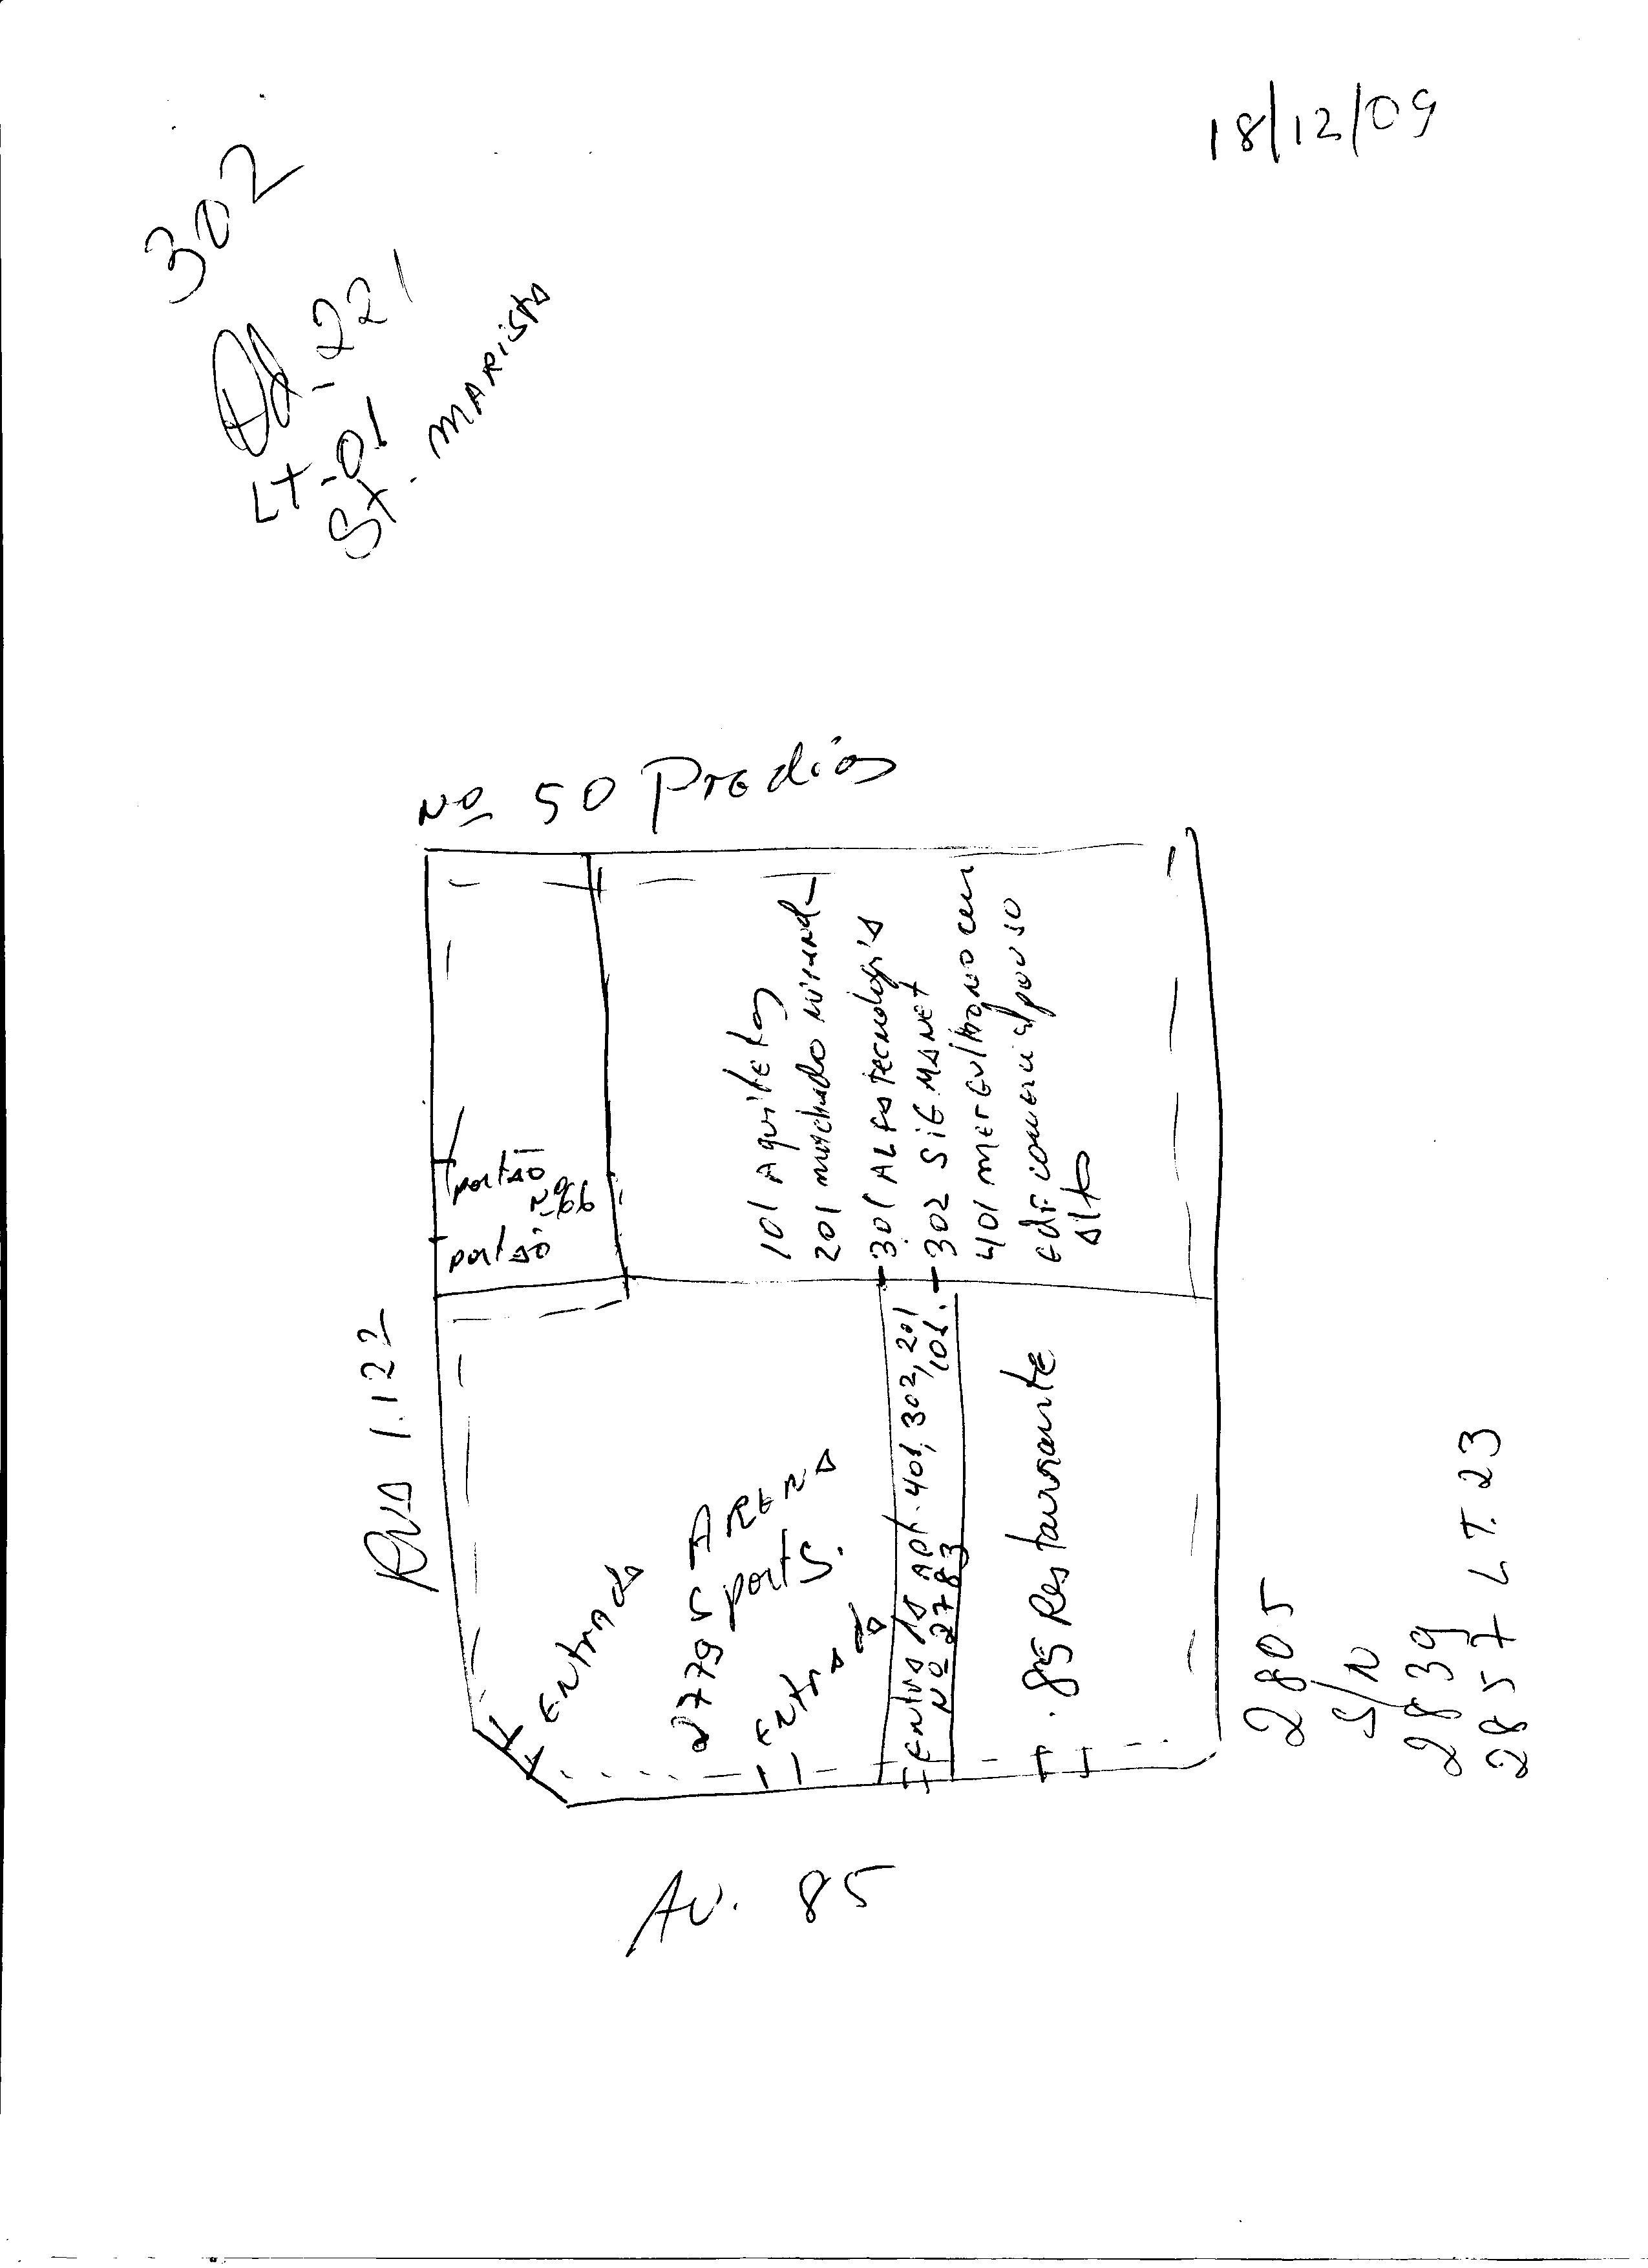 18/12/09
302
Qd-221
LT-01
St. MARistA
Nº 50 Predios
RUA 1.122
portão
Nº 66
portão
101 Aquitetos
201 machado
301 ALFA Tecnologia
302 SiGMANET
401 mergulho no ceu
Edf comercial pouso
Alto
ENtrAdA
2779 ARENA
SportS.
ENtrAdA
Entrada AP. 401, 302, 201
101.
Nº 2783
85 Restaurante
2805
S/N
2839
2857 LT. 23
AV. 85